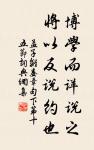 博學而詳說之
將以反說約也
孟子離婁章句下第十
五節詞典網集